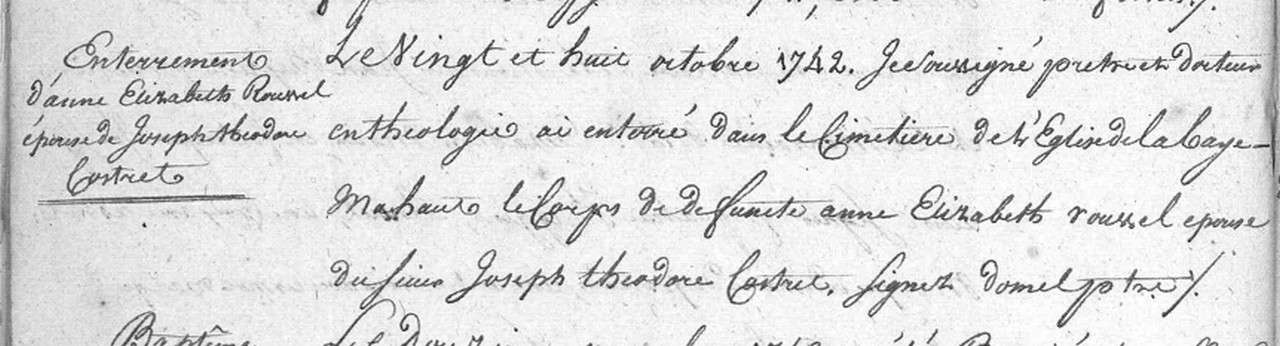 Enterrement
d'anne Elizabeth Roussel
épouse de Joseph theodore
Costret
Le Vingt et huit octobre 1742. Je soussigné pretre et docteur
en theologie ai enterré dans le Cimetiere de L'Eglise de la baye-
Mahaut le Corps de defuncte anne Elizabeth roussel epouse
du sieur Joseph theodore Costret. signet domel ptre /.
Baptême